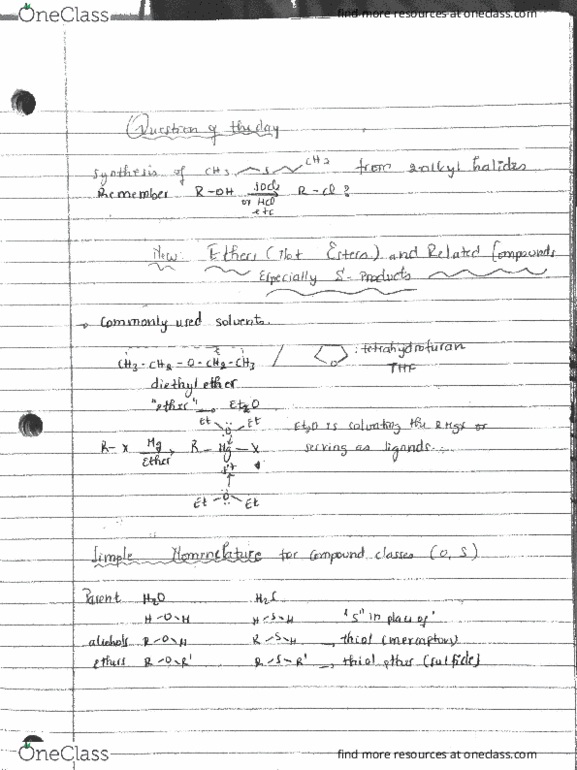 OneClass
find more resources at oneclass.com
Question of the day
Synthesis of CH3 S CH3 from 2 alkyl halides
Remember R-OH SOCl2 or HCl etc R-Cl?
New: Ethers (Not Esters) and Related Compounds
Especially S-Products
Commonly used solvents.
CH3-CH2-O-CH2-CH3 / O : tetrahydrofuran
THF
diethyl ether
"ether" Et2O
Et O Et Et2O is solvating the RMgX or
R-X Mg Ether R-Mg-X serving as ligands.
Et-O-Et
Simple Nomenclature for compound classes (O, S)
Parent H2O H2S
H-O-H H-S-H "S" in place of
alcohols R-O-H R-S-H thiol (mercaptan)
ethers R-O-R' R-S-R' thiol ether (sulfide)
OneClass
find more resources at oneclass.com